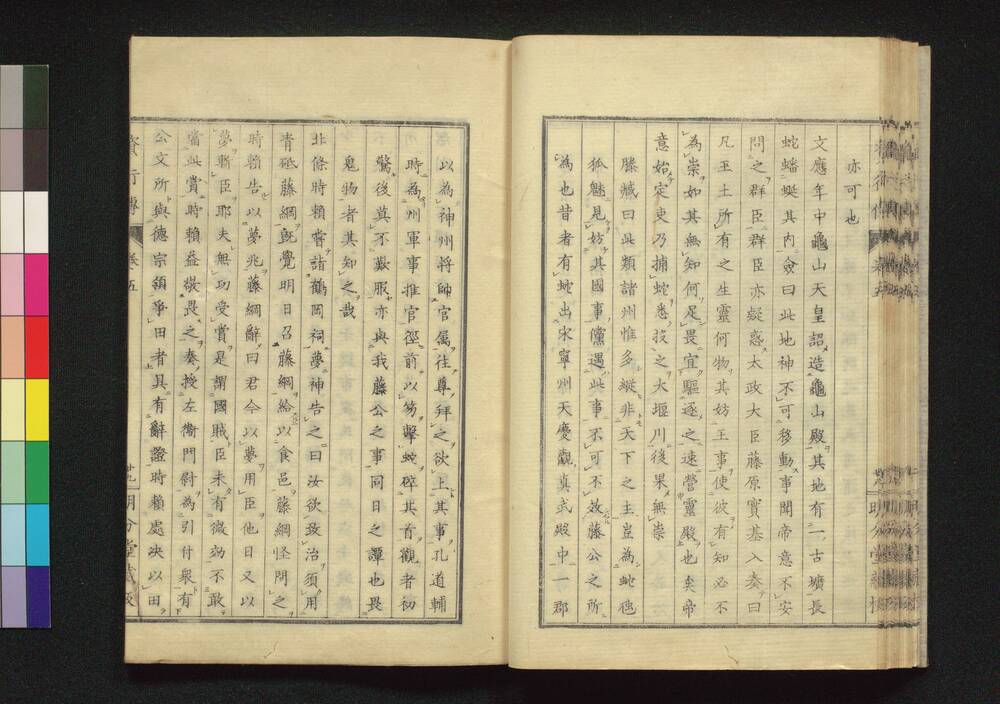 亦可也
文應年中龜山天皇詔造龜山殿其地有一古壙長
蛇蟠蜒其內僉曰此地神不可移動事聞帝意不安
問之群臣群臣亦疑惑太政大臣藤原實基入奏曰
凡王土所有之生靈何物其妨王事使彼有知必不
為祟如其無知何足畏宜驅逐之速營靈殿也矣帝
意始定吏乃捕蛇悉投之大堰川後果無祟
滕臧曰此類諸州惟多縱非天下之主豈為蛇虺
狐魅見妨其國事儻遇此事不可不效藤公之所
為也昔者有蛇出宋寧州天慶觀真武殿中一郡
以為神州將帥官屬往尊拜之欲上其事孔道輔
時為州軍事推官徑前以笏擊蛇碎其首觀者初
驚後莫不歎服亦與我藤公之事同日之譚也畏
鬼物者其知之哉
北條時賴嘗詣鶴岡祠夢神告之曰汝欲致治須用
青砥藤綱旣覺明日召藤綱給以食邑藤綱怪問之
時賴告以夢兆藤綱辭曰君今以夢用臣他日又以
夢斬臣耶夫無功受賞是謂國賊臣未有微効不敢
當此賞時賴益敬畏之奏授左衞門尉為引付衆有
公文所與德宗領爭田者具有辭證時賴處决以田
資行傳 卷五 廿九 明分堂藏